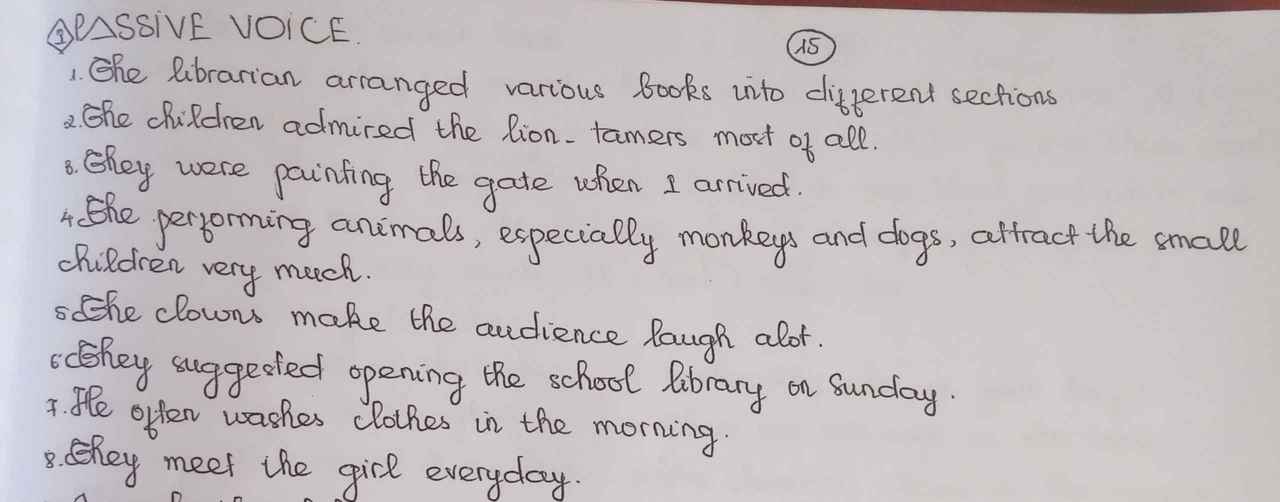 ③ PASSIVE VOICE.
15
1. The librarian arranged various books into different sections
2. The children admired the lion-tamers most of all.
3. They were painting the gate when I arrived.
4. The performing animals, especially monkeys and dogs, attract the small
children very much.
5. The clowns make the audience laugh alot.
6. They suggested opening the school library on Sunday.
7. He often washes clothes in the morning.
8. They meet the girl everyday.